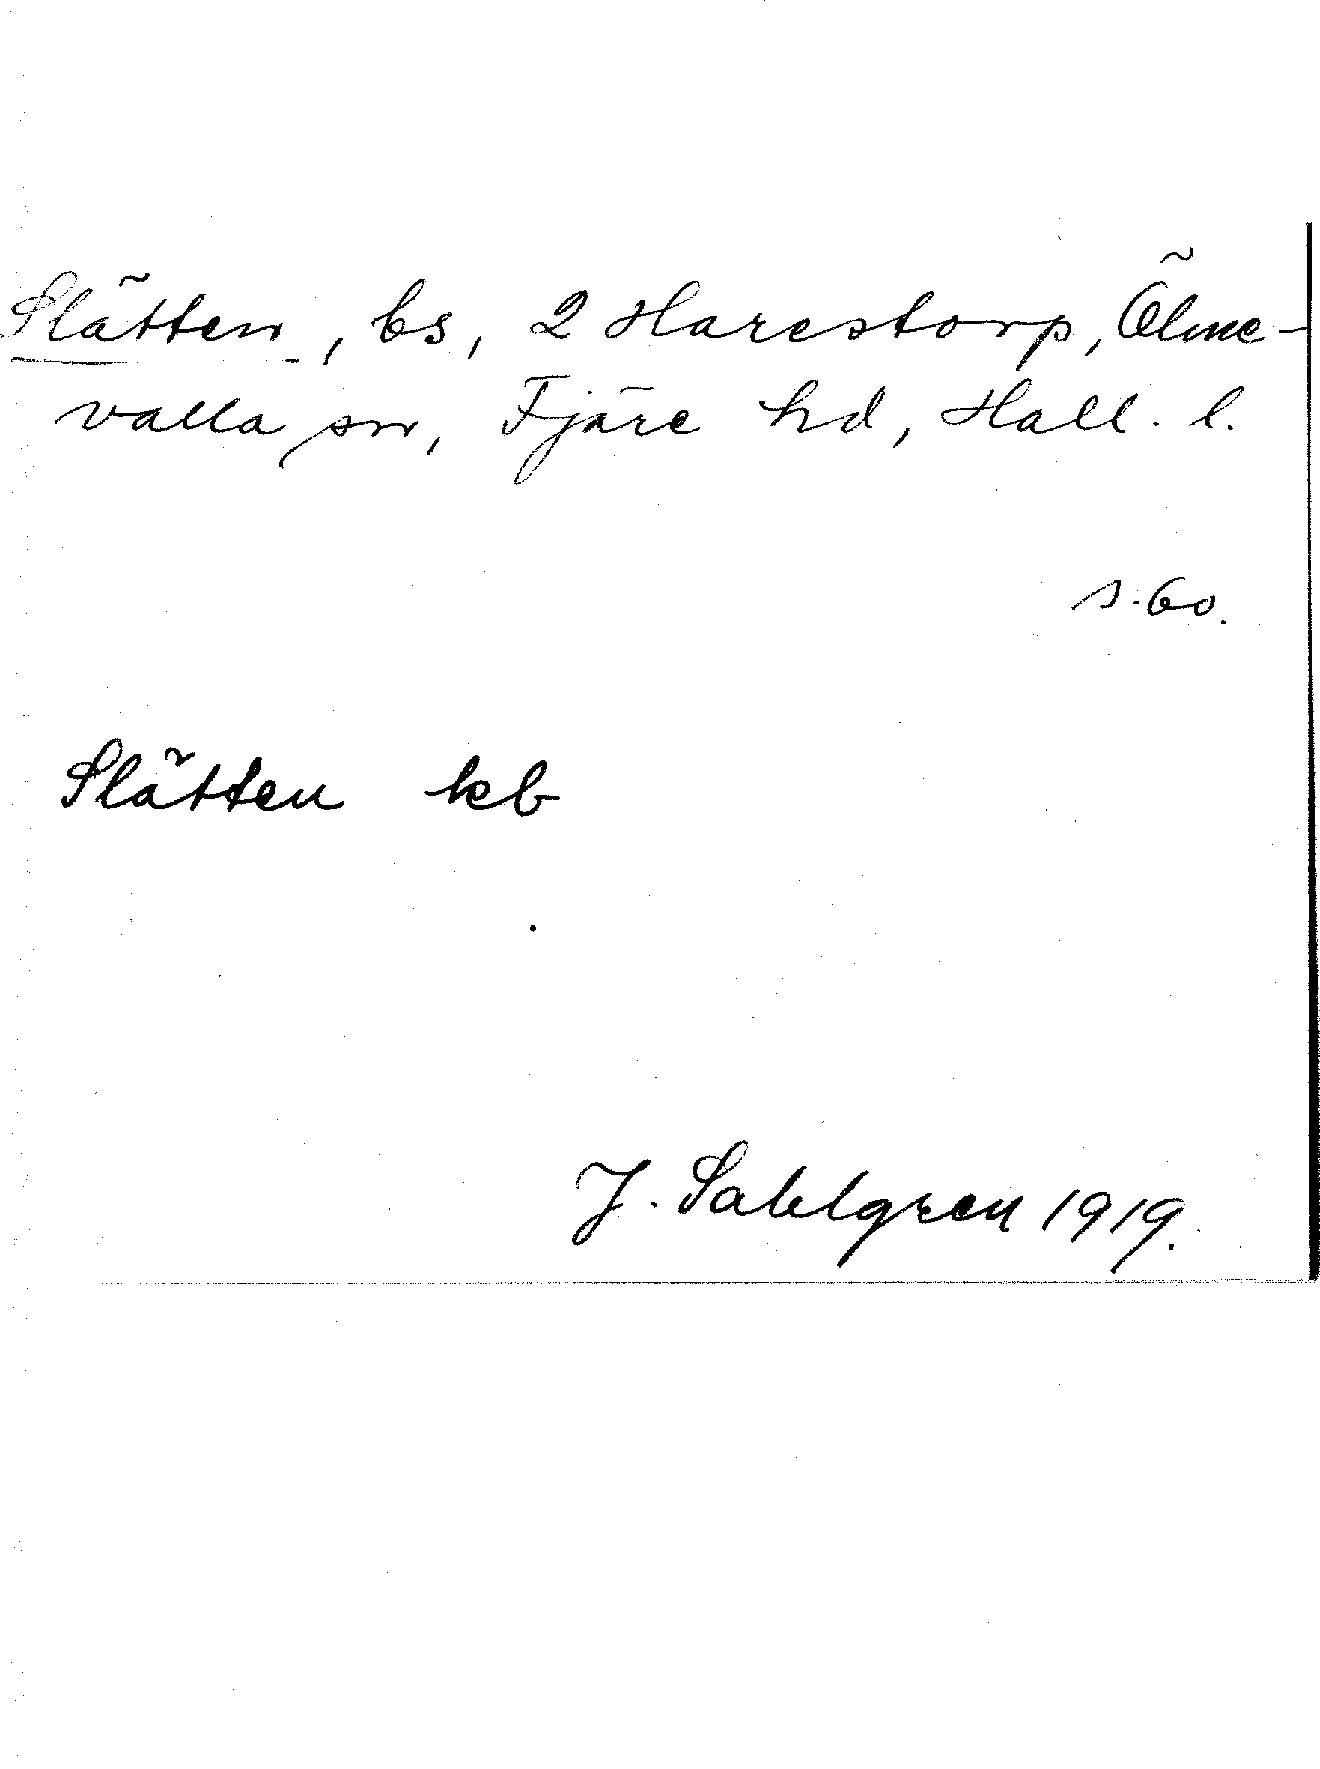 Slätten, bs, 2 Harestorp, Ölme-
valla sn, Fjäre hd, Hall. l.
s. 60.
Slätten kb
J. Sahlgren 1919.